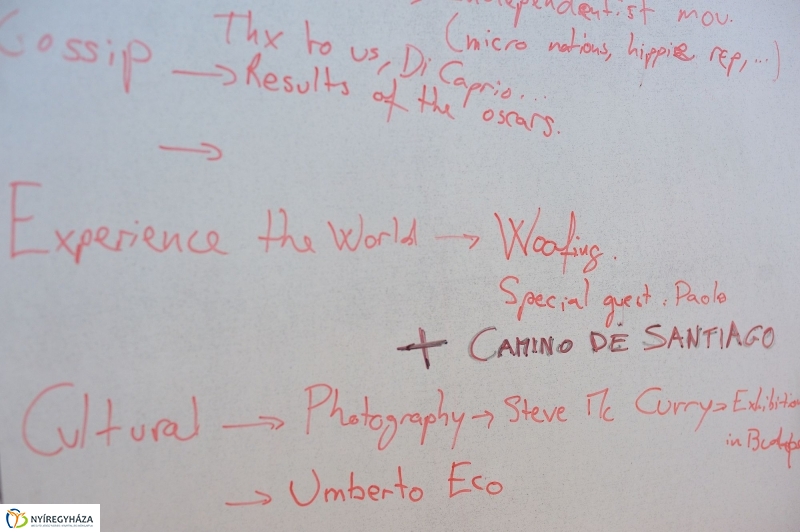 independentist mov.
(micro nations, hippie rep, ...)
Gossip → Thx to us, Di Caprio...
Results of the oscars.
→
Experience the World → Woofing.
Special guest: Paolo
+ CAMINO DE SANTIAGO
Cultural → Photography → Steve Mc Curry → Exhibition
in Budape
→ Umberto Eco
NYÍREGYHÁZA